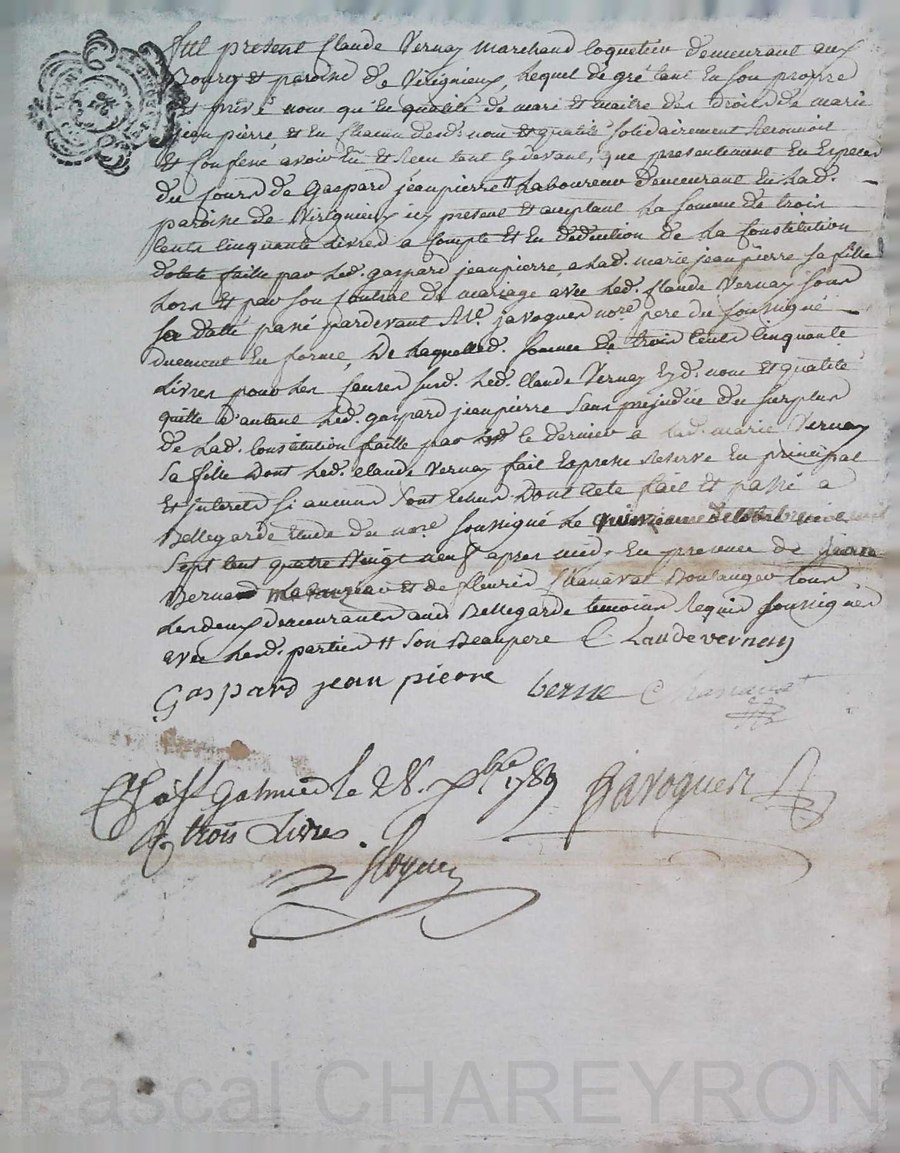 Fut présent Claude Vernay marchand coquetier demeurant aux
Bourg et paroisse de Virignieux lequel de gré tant en son propre
et privé nom qu'en qualité de mari et maitre des droits de marie
jean pierre, et en chacun desd. nom et qualité solidairement Reconnoit
et confessé avoir Eu et Recu tant cy devant, que presentement En Especes
du jours de Gaspard jeanpierre # Laboureur demeurant En Lad.
paroisse de Virignieux icy present et acceptant La somme de trois
cents cinquante Livres a compte et En déduction de La constitution
dotale faitte par Led. gaspard jeanpierre, a Lad. marie jeanpierre sa fille
Lors et par son contrat de mariage avec Led. Claude Vernay sous
sa datte passé pardevant Me. javoguer nore pere du soussigné
duement En forme, De Laquelled. somme de trois cents cinquante
Livres pour Les causes surd. Led. Claude Vernay Eyd. nom et qualité
quitte d'autant Led. gaspard jeanpierre sans prejudice du surplus
de Lad. constitution faitte par le dernier a Lad. marie Vernay
sa fille dont Led. claude Vernay fait Expresse Reserve En principal
et interets si aucuns sont Echus. dont acte fait et passé a
Bellegarde Etude du nore soussigné Le quinzieme
sept cent quatre Vingt neuf apres midi, En presence de
Bernard et de fleurie Chanavat Boulanger tous
Les deux demeurants aud. Bellegarde temoins Requis soussignés
avec Lesd. parties # son Beaupere Claude vernay
Gaspard jean pierre berne Chanavat
A St Galmier le 28. 8bre 1789 Javoguer
R. trois Livres
Pascal CHAREYRON